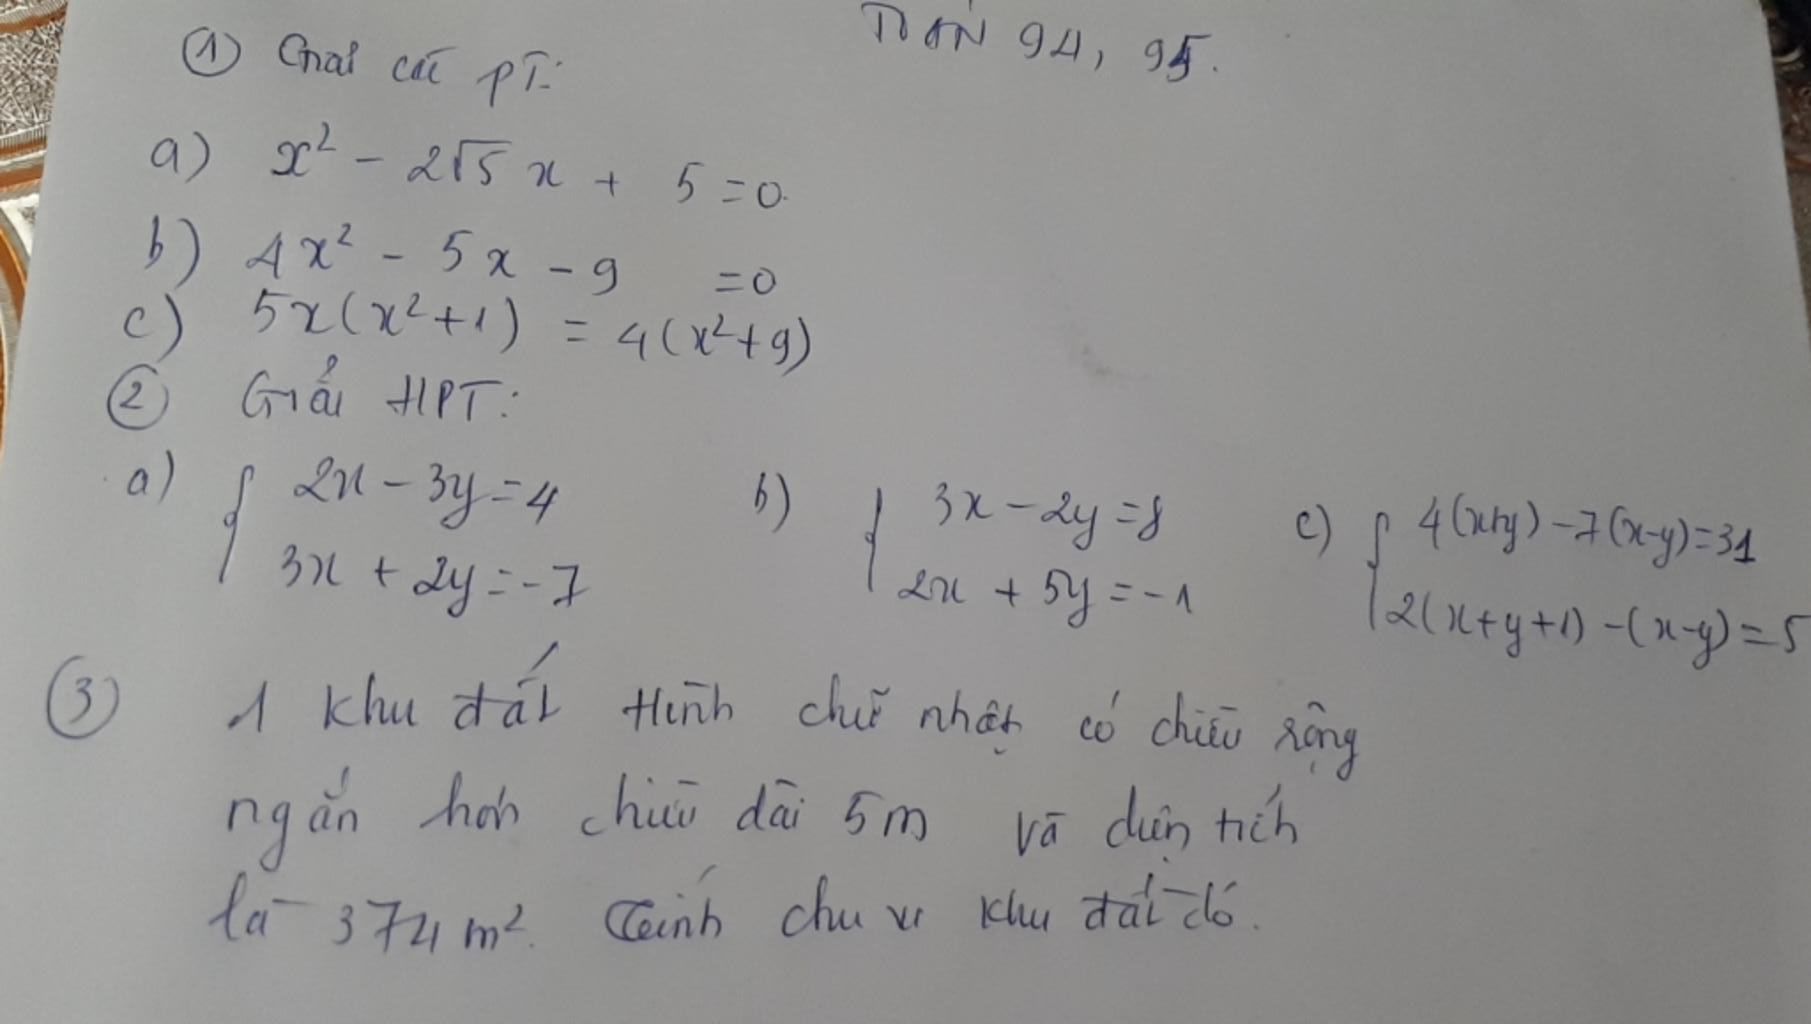 TOÁN 94, 95.
① Giải các PT:
a) x² - 2√5 x + 5 = 0.
b) 4x² - 5x - 9 = 0
c) 5x(x²+1) = 4(x²+9)
② Giải HPT:
a) { 2x - 3y = 4
3x + 2y = -7
b) { 3x - 2y = 8
2x + 5y = -1
c) { 4(x+y) - 7(x-y) = 31
2(x+y+1) - (x-y) = 5
③ 1 khu đất Hình chữ nhật có chiều rộng
ngắn hơn chiều dài 5m và diện tích
là 374 m². Tính chu vi khu đất đó.